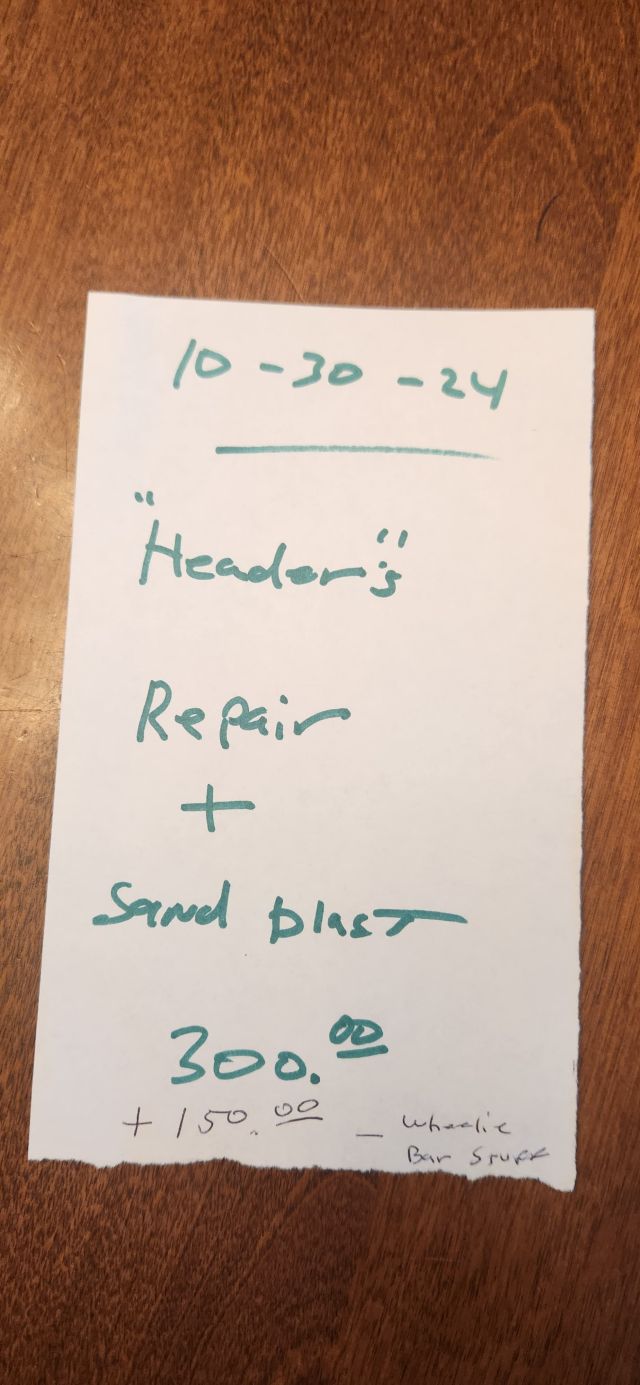 10-30-24
"Header's"
Repair
+
Sand blast
300.00
+ 150.00 – Wheelie
Bar Stuff